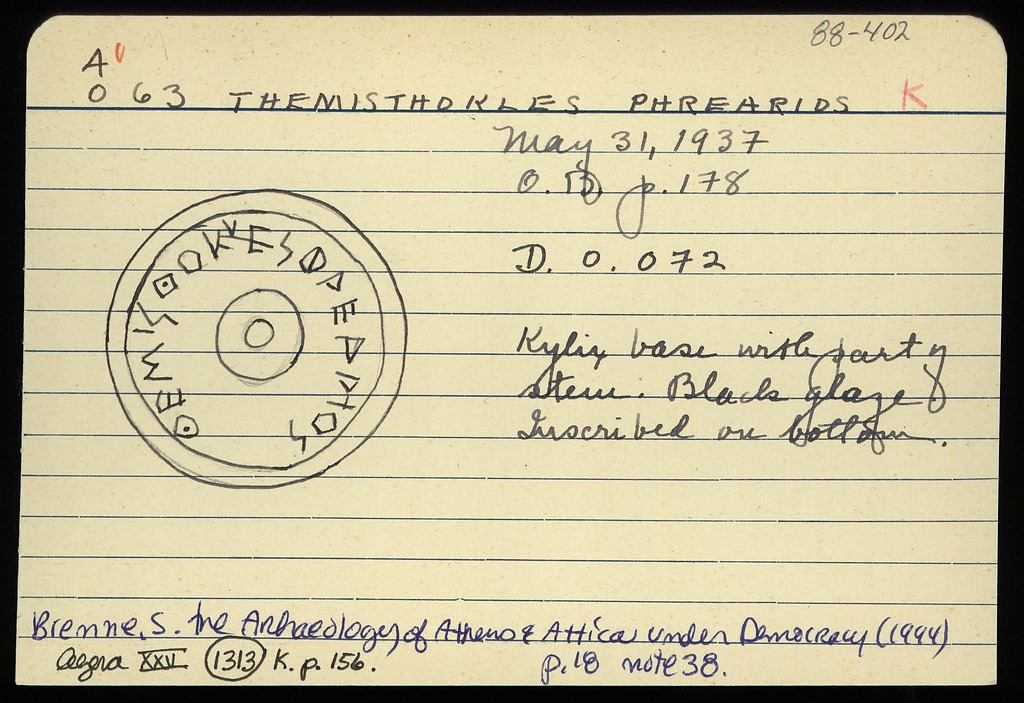 88-402
A
O 63 THEMISTHOKLES PHREARIOS K
May 31, 1937
O. B, p. 178
D. O. 072
ΘEMISΘOKLESΦPEAPIOS
Kylix base with part of
stem. Black glaze
Inscribed on bottom.
Brenne, S. The Archaeology of Athens & Attica under Democracy (1994)
p. 18 note 38.
Agora XXV (1313) K. p. 156.